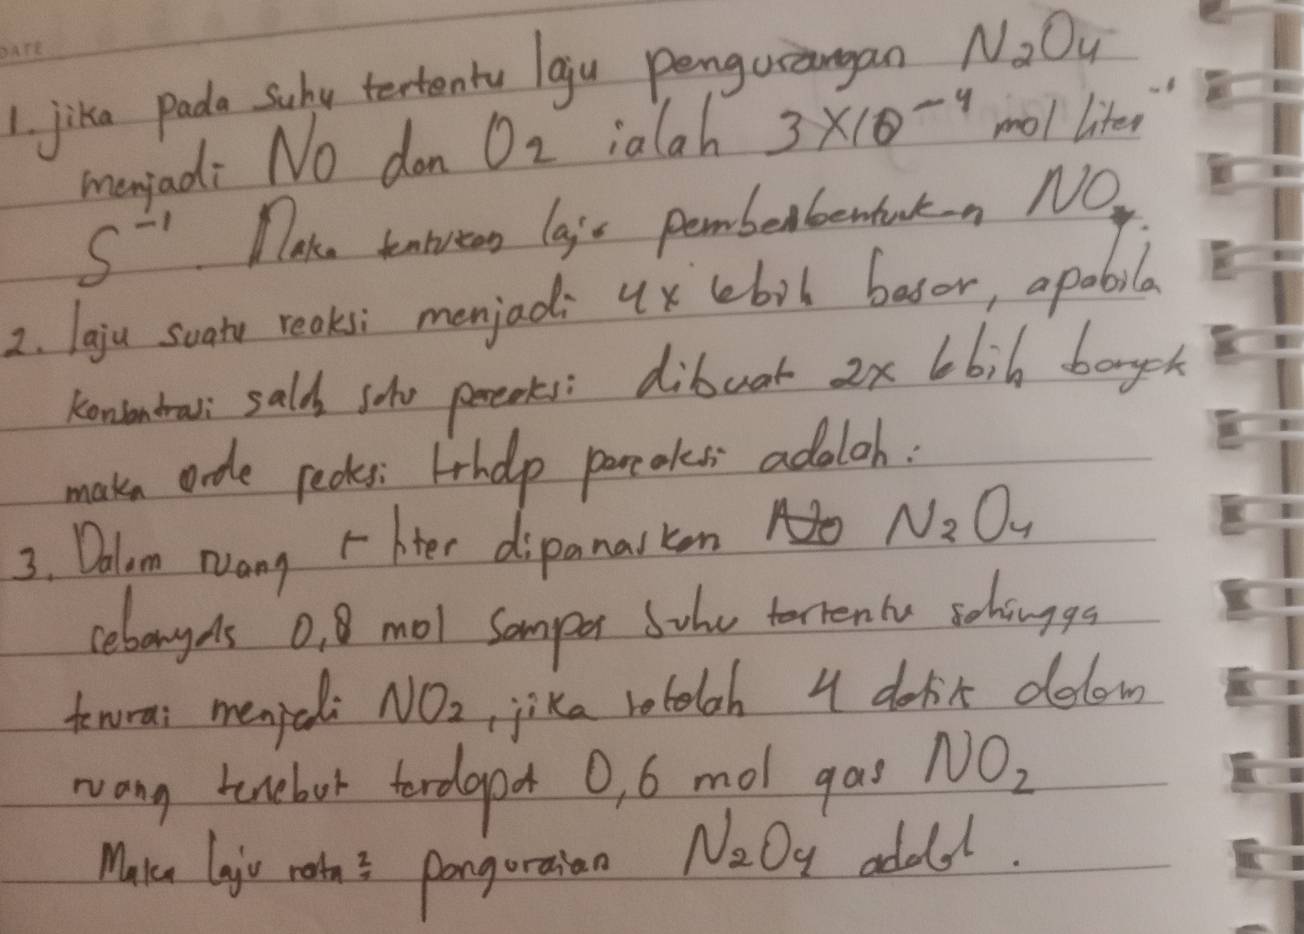 DATE
1. jika pada suhu tertentu laju pengurangan N2O4
menjadi NO dan O2 ialah 3 × 10⁻⁴ mol liter⁻¹
S⁻¹. Maka tentukan laju pembenbentukan NO
2. laju suatu reaksi menjadi 4x lebih besar, apabila
konsentrasi salah satu pereaksi dibuat 2x lebih banyak
maka orde reaksi trhdp pereaksi adalah :
3. Dalam ruang liter dipanaskan N2O4
sebanyak 0,8 mol sampai suhu tertentu sehingga
terurai menjadi NO2, jika setelah 4 detik dalam
ruang tersebut terdapat 0,6 mol gas NO2
Maka laju rata² penguraian N2O4 adalah.